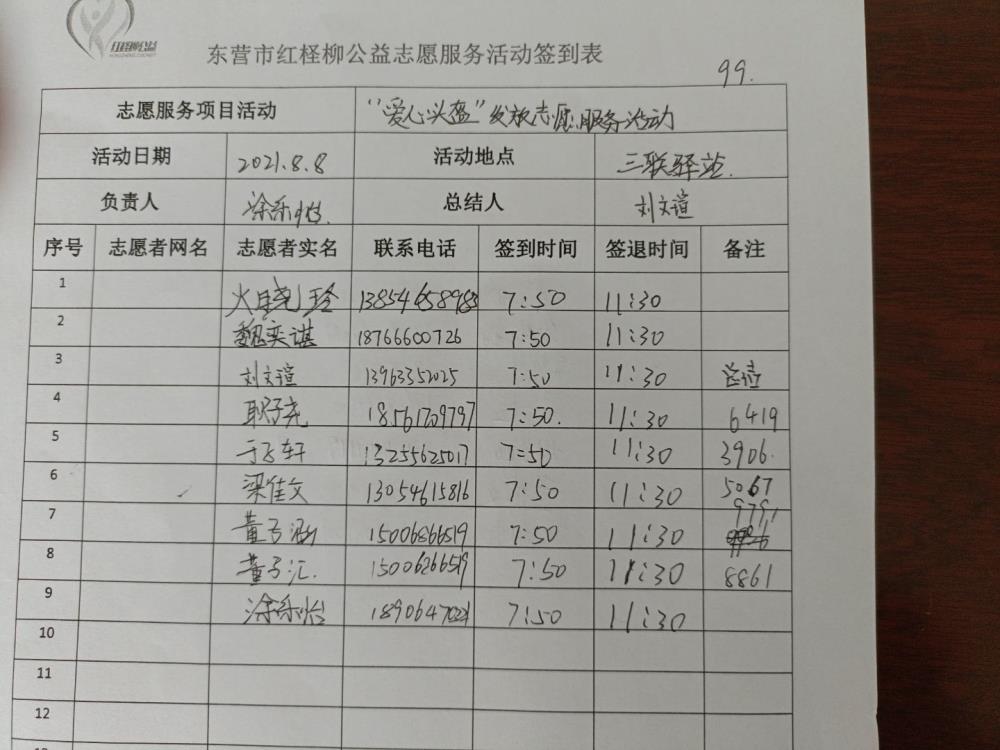 红柽柳公益
东营市红柽柳公益志愿服务活动签到表
99.
志愿服务项目活动 "爱心头盔"发放志愿服务活动
活动日期 2021.8.8 活动地点 三联驿站.
负责人 涂乐怡. 总结人 刘文谊
序号 志愿者网名 志愿者实名 联系电话 签到时间 签退时间 备注
1 13854658985 7:50 11:30
2 魏奕谌 18766600726 7:50 11:30
3 刘文谊 13963352025 7:50 11:30
4 耿子尧 18561209797 7:50. 11:30 6419
5 于飞轩 13255625017 7:50 11:30 3906.
6 梁佳文 13054615816 7:50 11:30 5067
7 董子涵 15006866519 7:50 11:30 9791
8 董子汇. 15006266519 7:50 11:30 8861
9 涂乐怡 7:50 11:30
10
11
12